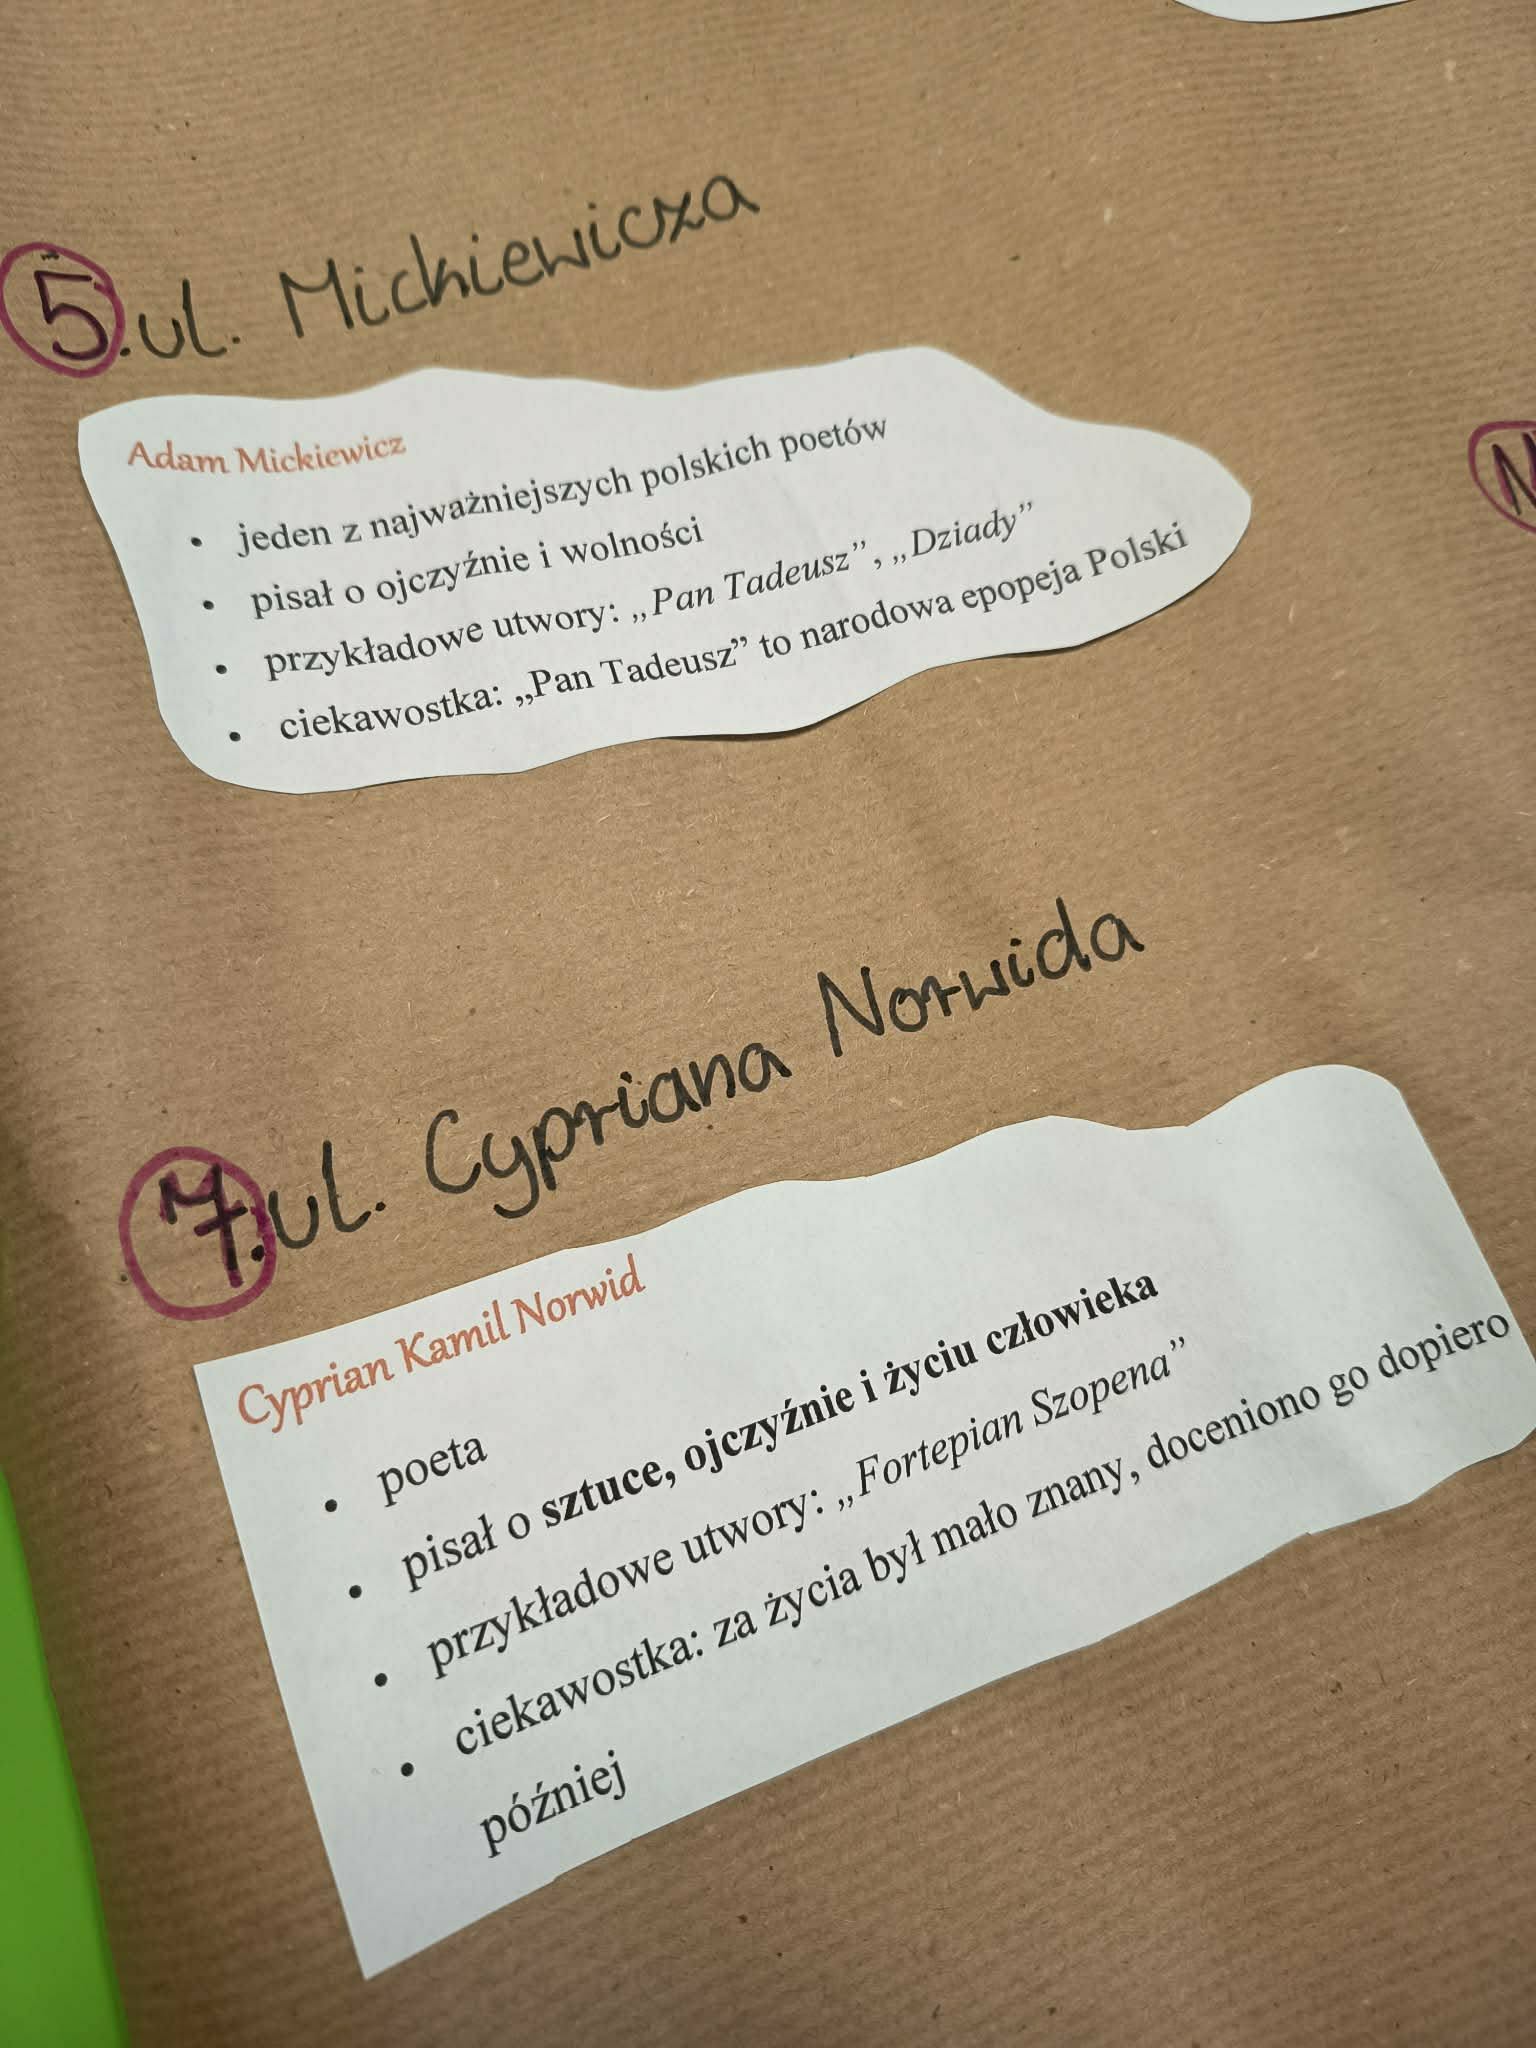 5. ul. Mickiewicza
Adam Mickiewicz
• jeden z najważniejszych polskich poetów
• pisał o ojczyźnie i wolności
• przykładowe utwory: „Pan Tadeusz”, „Dziady”
• ciekawostka: „Pan Tadeusz” to narodowa epopeja Polski
N
7. ul. Cypriana Norwida
Cyprian Kamil Norwid
• poeta
• pisał o sztuce, ojczyźnie i życiu człowieka
• przykładowe utwory: „Fortepian Szopena”
• ciekawostka: za życia był mało znany, doceniono go dopiero
później